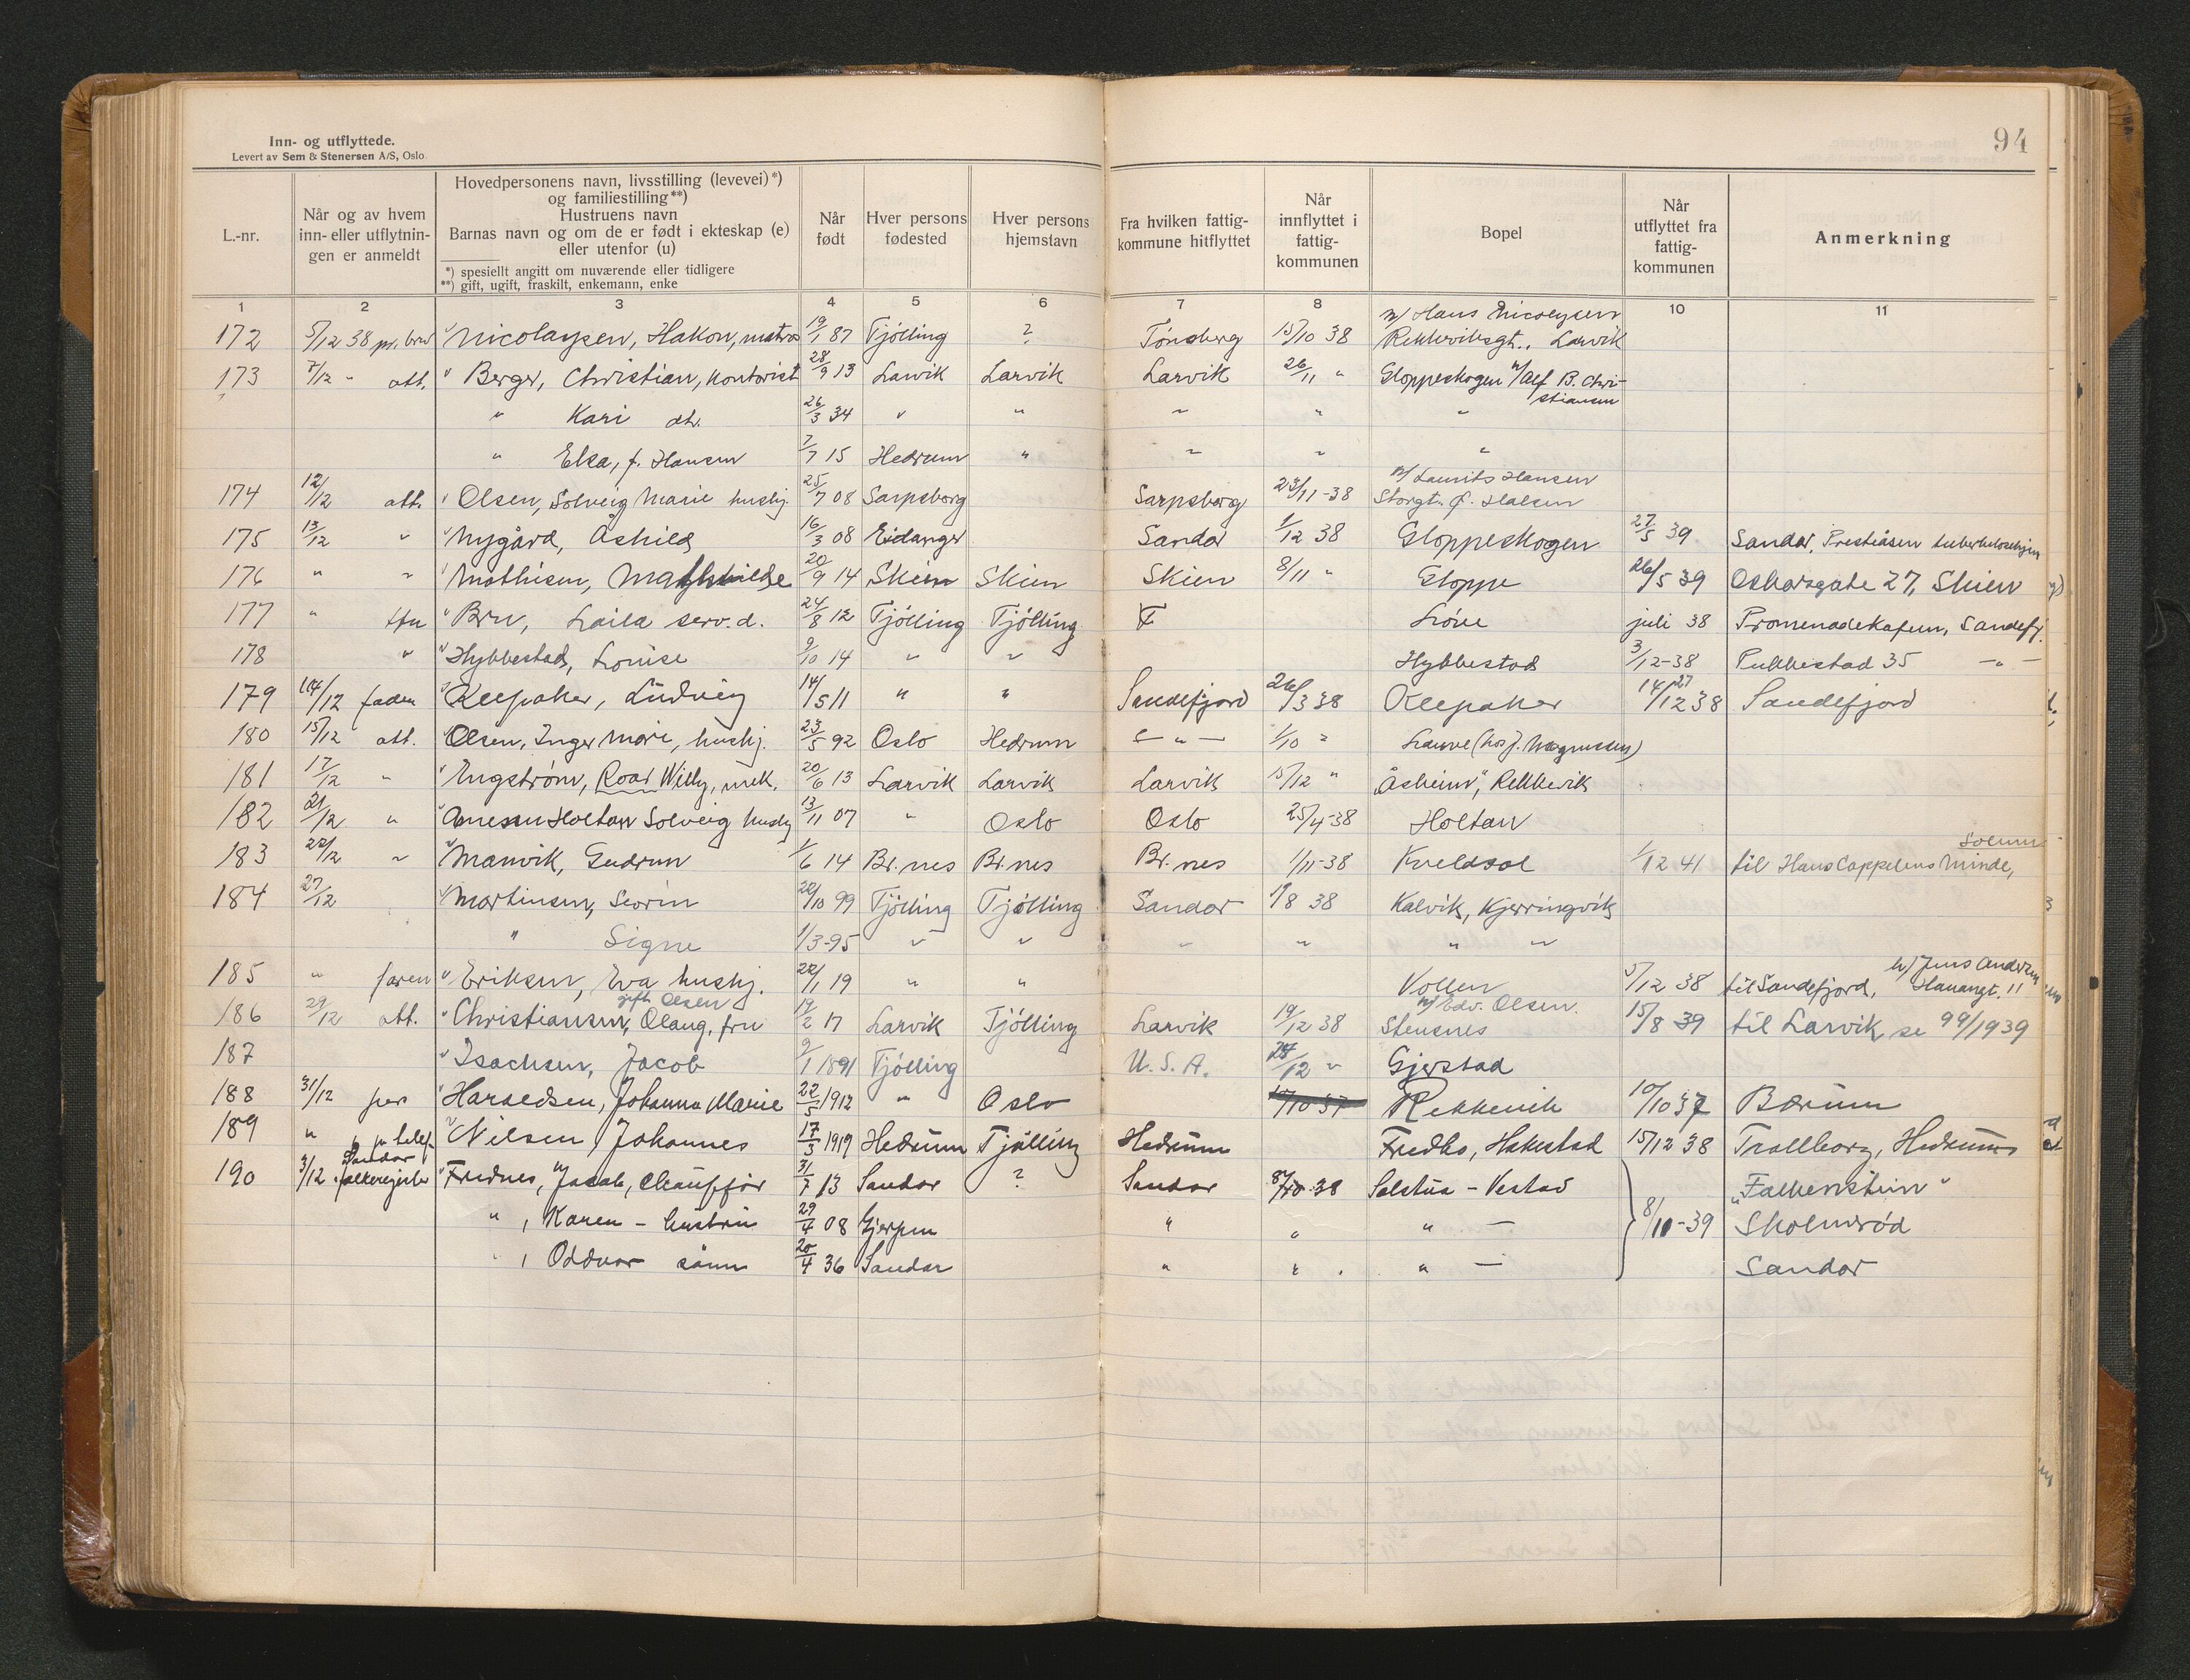 94
Inn- og utflyttede.
Levert av Sem & Stenersen A/S, Oslo
L.-nr.
Når og av hvem inn- eller utflytnin-gen er anmeldt
Hovedpersonens navn, livsstilling (levevei)*) og familiestilling**)
Hustruens navn
Barnas navn og om de er født i ekteskap (e) eller utenfor (u)
*) spesiellt angitt om nuværende eller tidligere
**) gift, ugift, fraskilt, enkemann, enke
Når født
Hver persons fødested
Hver persons hjemstavn
Fra hvilken fattig-kommune hitflyttet
Når innflyttet i fattig-kommunen
Bopel
Når utflyttet fra fattig-kommunen
Anmerkning
1 2 3 4 5 6 7 8 9 10 11
172 5/12 38 pr. brev Nicolaysen, Hakon, matros 19/1 87 Tjølling ? Tønsberg 15/10 38 v/ Hans Nicolaysen Rekkeviksgt., Larvik
173 7/12 " att. " Berger, Christian, kontorist 28/9 13 Larvik Larvik Larvik 26/11 " Gloppeskogen v/Alf B. Chri-stiansen
" Kari dtr. 26/3 34 " " " " "
" Elsa, f. Hansen 7/7 15 Hedrum " " " "
174 12/12 att. " Olsen, Solveig Marie hushj. 25/7 08 Sarpsborg Sarpsborg 23/11-38 v/ Laurits Hansen Storgt. Ø. Halsen
175 13/12 " " Nygård, Åshild 16/3 08 Eidanger Sandar 1/12 38 Gloppeskogen 27/5 39 Sandar, Prestiåsen tuberkulosehjem
176 " " " Mathisen, Mathilde 20/9 14 Skien Skien Skien 8/11 " Gloppe 26/5 39 Oskarsgate 27, Skien
177 " " Bru, Laila serv.d. 24/8 12 Tjølling Tjølling F Løve juli 38 Promenadekafeen, Sandefj.
178 " " Hybbestad, Louise 9/10 14 " " Hybbestad 3/12-38 Pukkestad 35 - " -
179 14/12 faderen " Kleepaker, Ludvig 14/5 11 " " Sandefjord 26/3 38 Kleepaker 14/12 38 27 Sandefjord
180 15/12 att. " Olsen, Inger Marie, hushj. 23/5 92 Oslo Hedrum - " - 1/10 " Lauve (hos J. Magnussen)
181 17/12 " " Engstrøm, Roar Willy, mek. 20/6 13 Larvik Larvik Larvik 15/12 " "Åsheim", Rekkevik
182 21/12 " " Anesen Holtan Solveig hushj 13/11 07 " Oslo Oslo 25/4-38 Holtan
183 22/12 " " Manvik, Gudrun 1/6 14 Br.nes Br.nes Br.nes 1/11-38 Kveldsol 1/12 41 til Hans Cappelens Minde, Solum
184 27/12 " Martinsen, Seorin 22/10 99 Tjølling Tjølling Sandar 1/8 38 Kalvik, Kjerringvik
" Signe 1/3-95 " " " " " "
185 " faren " Eriksen, Eva hushj. 22/1 19 " " Vollen 5/12 38 til Sandefjord, h/ Jens Andersen Hauangt. 11
186 29/12 att. " Christiansen, Olaug, fru gift Olsen 19/2 17 Larvik Tjølling Larvik 19/12 38 v/ Edv. Olsen. Stensnes 15/8 39 til Larvik, se 99/1939
187 " Isachsen, Jacob 9/1 1891 Tjølling U.S.A. 28/12 " Gjerstad
188 31/12 pers " Haraldsen, Johanna Marie 22/5 1912 " Oslo 10/10 37 Rekkevik 10/10 37 Bærum
189 " pr telef. " Nilsen, Johannes 17/3 1919 Hedrum Tjølling Hedrum Fredbo, Hakestad 15/12 38 Trollborg, Hedrum
190 3/12 Sandar folkeregister " Frednes, Jacob, chauffør 31/7 13 Sandar ? Sandar 8/10 38 Solstua - Vestad 8/10-39 "Falkenstein"
" , Karen - hustru 29/4 08 Gjerpen " " " - Skolmerød
" , Oddvar sønn 20/4 36 Sandar " " " - Sandar